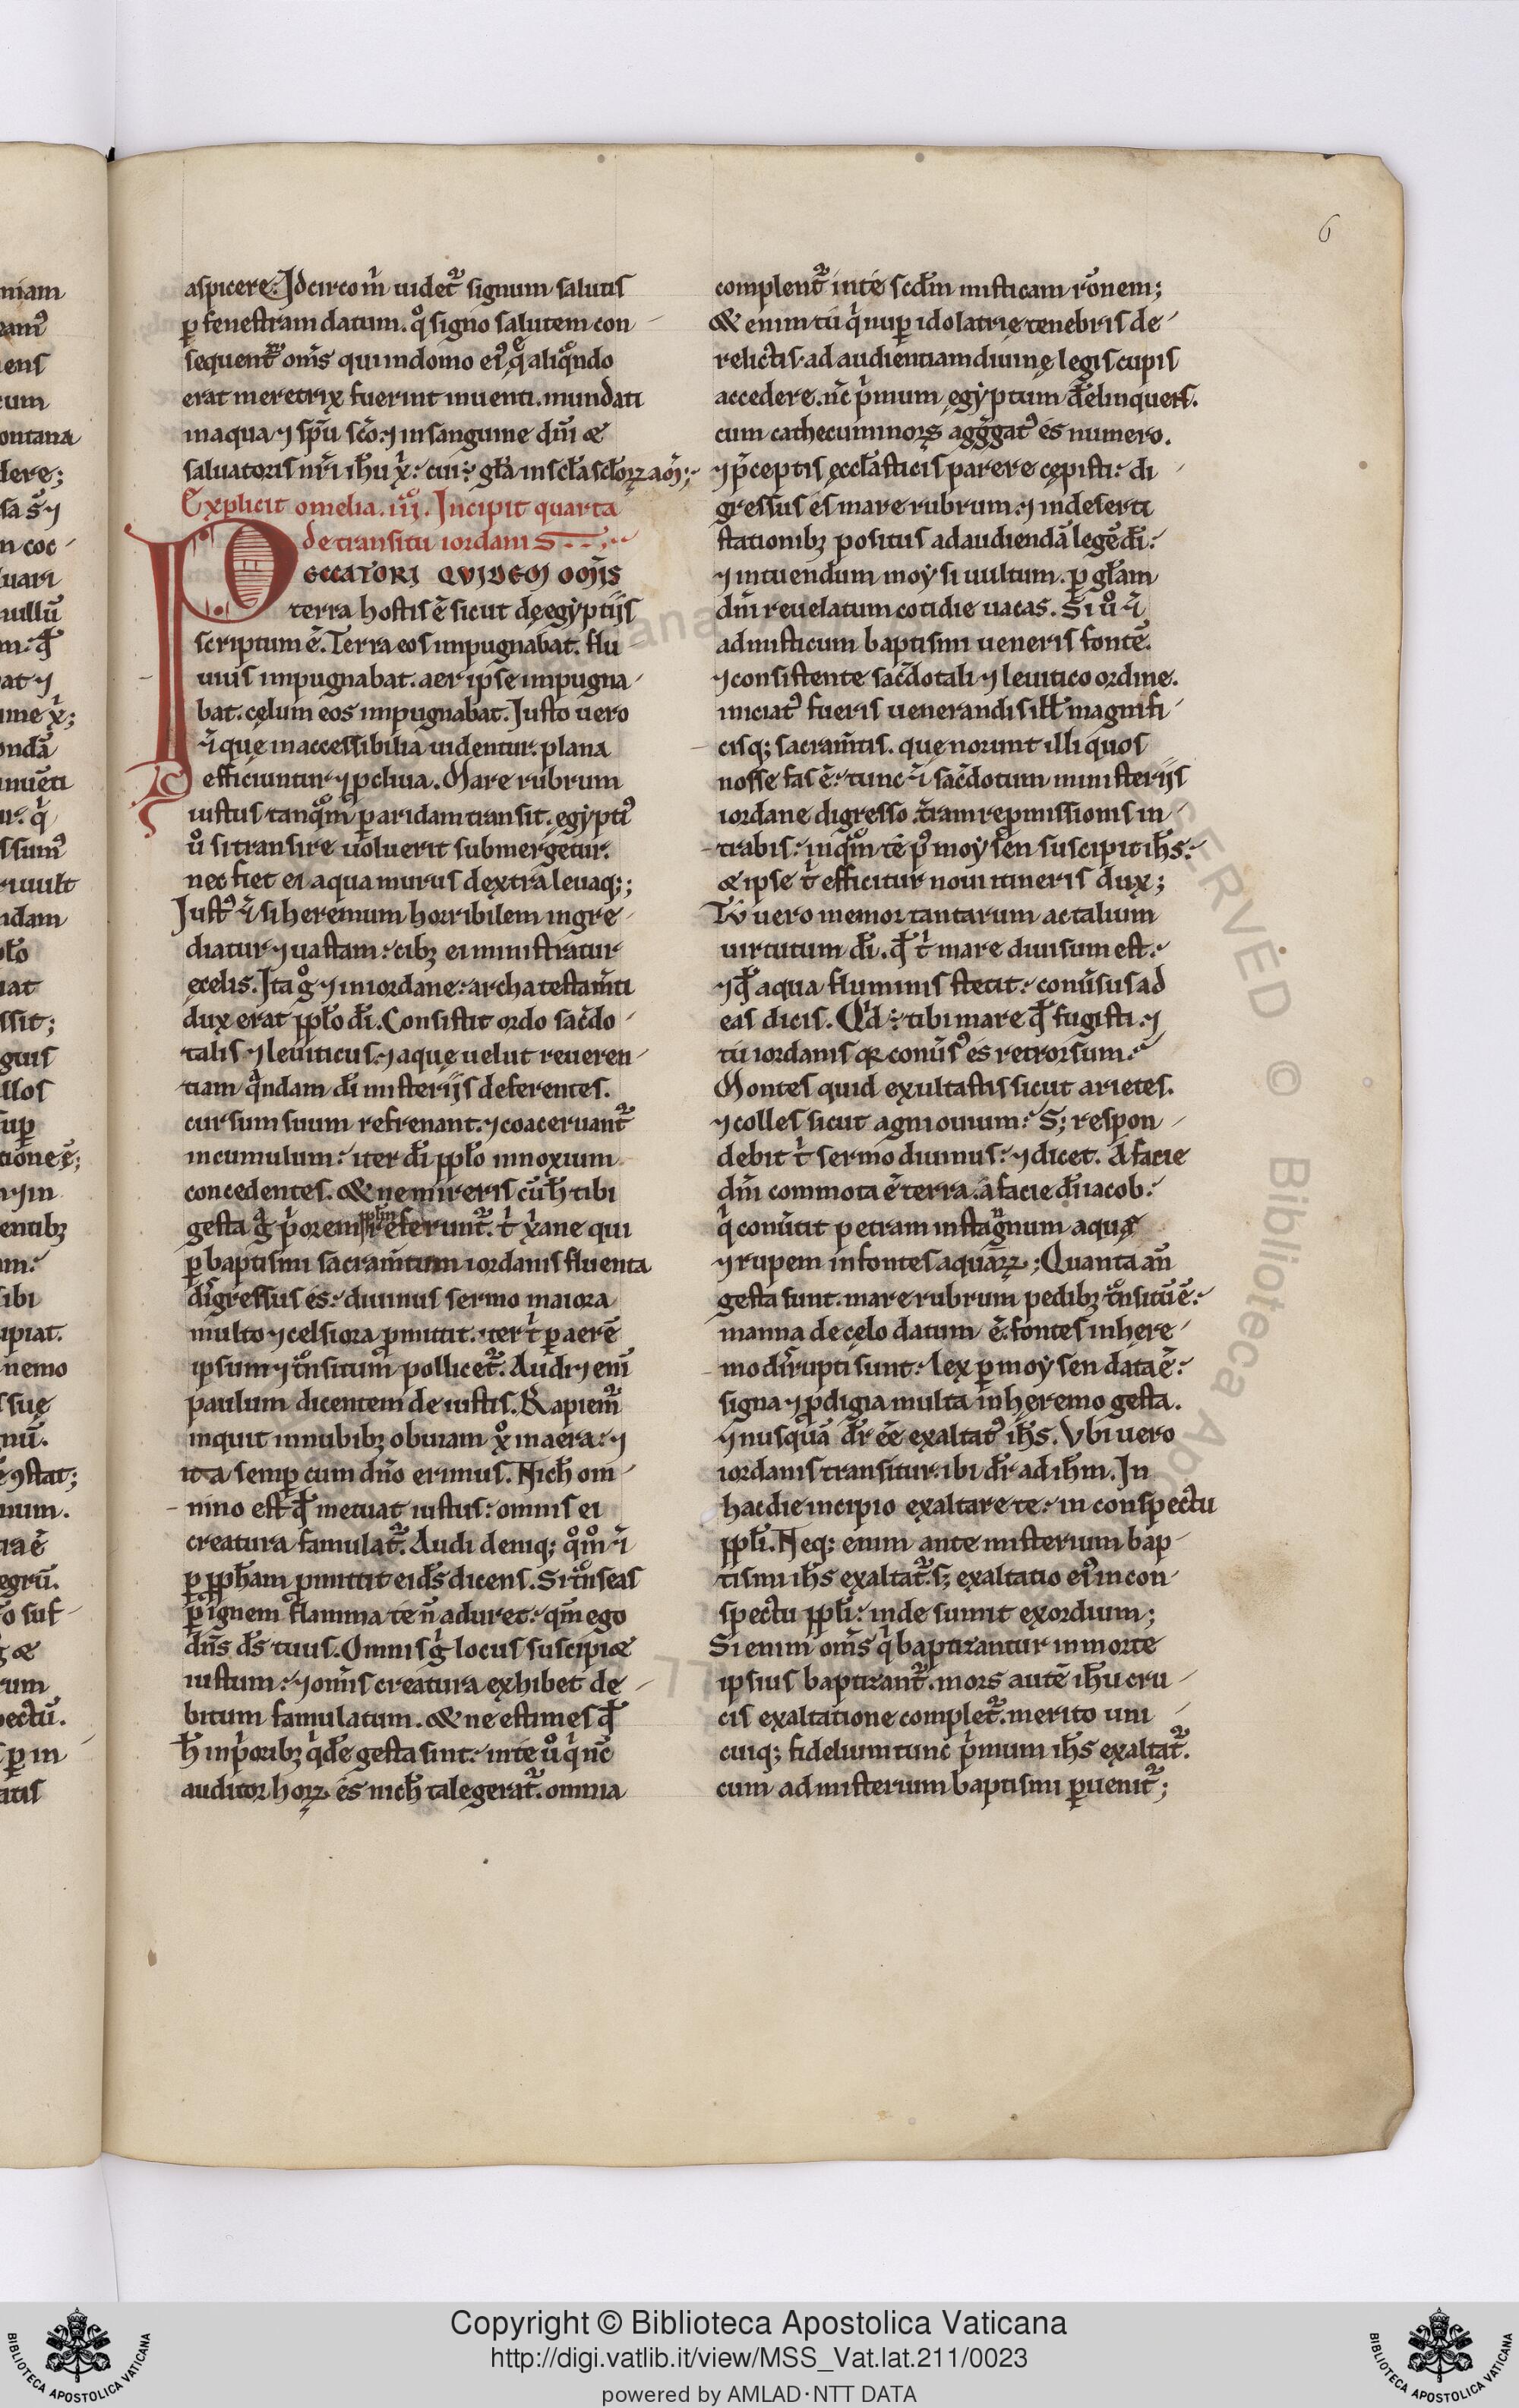 6
aspicere. Idcirco m̄ uidet᷑ signum salutis
ꝑ fenestram datum. qͦ signo salutem con-
sequent᷑ om̄s qui in domo ei᷒ q̨ aliqͦndo
erat meretrix fuerint inuenti. mundati
in aqua ⁊ sp̄u sc̄o. ⁊ in sanguine dn̄i &
saluatoris nr̄i ih̄u x̄. cui ÷ gl̄a in scl̄a scl̄oꝝ am̄;
Explicit omelia .iii. Incipit quarta
de transitu iordanis
PECCATORI QVIDEM OMĪS
terra hostis ē sicut de egẏptijs
scriptum ē. Terra eos impugnabat. flu-
uius impugnabat. aer ipse impugna-
bat. cęlum eos impugnabat. Iusto uero
⁊̄ que inaccessibilia uidentur. plana
efficiuntur ⁊ ꝓcliua. Mare rubrum
iustus tanqͣm ꝑ aridam transit. egẏpti᷒
uͦ si transire uoluerit submergetur.
nec fiet ei aqua murus dextra leuaq;;
Iust᷒ ⁊̄ si heremum horribilem ingre-
diatur ⁊ uastam. cib; ei ministratur
ę celis. Ita gͦ ⁊ in iordane. archa testam̄ti
dux erat ppl̄o dī. Consistit ordo sac̄do-
talis ⁊ leuiticus. ⁊ aquę uelut reueren-
tiam qͣndam dī misterijs deferentes.
cursum suum refrenant. ⁊ coaceruant᷑
in cumulum. iter dī ppl̄o innoxium
concedentes. & ne mireris cū h̄ tibi
gesta gͥ pͥorem ppl̄m referunt᷑. tͥ x̄ane qui
ꝑ baptismi sacram̄tum iordanis fluenta
digressus es. diuinus sermo maiora
multo ⁊ celsiora ꝓmittit. iter tͥ ꝑ aerē
ipsum ⁊ tͣnsitum pollicet᷑. Audi enī
paulum dicentem de iustis. Rapiem᷑
inquit in nubib; obuiam xͦ in aera. ⁊
ita semꝑ cum dn̄o erimus. Nich̄ om-
nino est qđ metuat iustus. omnis ei
creatura famulat᷑. Audi deniq; qͦm ⁊̄
ꝑ pph̄am ꝓmittit ei ds̄ dicens. Si tͣnseas
ꝑ ignem flamma te n̄ aduret. qm̄ ego
dn̄s ds̄ tuus. Omnis gͥ locus suscipi&
iustum. ⁊ omīs creatura exhibet de-
bitum famulatum. & ne estimes qđ
h̄ in pͥorib; qͥdē gesta sint. in te uͦ qͥ nc̄
auditor hoꝝ es nich̄ tale gerat᷑. omnia
complent᷑ in te scd̄m misticam rōnem;
& enim tu qͥ nuꝑ idolatrię tenebris de-
relictis ad audientiam diuinę legis cupis
accedere. nc̄ pͥmum ęgẏptum d̄elinquens.
cum cathecuminoꝝ aggͣgat᷒ es numero.
⁊ p̄ceptis eccl̄asticis parere cępisti. di-
gressus es mare rubrum. ⁊ in deserti
stationib; positus ad audiendā legē dī.
⁊ intuendum moẏsi uultum. ꝑ gl̄am
dn̄i reuelatum cotidie uacas. Si uͦ ⁊̄
ad misticum baptismi ueneris fontē.
⁊ consistente sac̄dotali ⁊ leuitico ordine.
iniciat᷒ fueris uenerandis ill̄ magnifi-
cisq; sacram̄tis. que norunt illi quos
nosse fas ē. tunc ⁊̄ sac̄dotum ministerijs
iordane digresso. t̄ram repmissionis in-
trabis. in qͣm te p᷒ moẏsen suscipit ih̄s.
& ipse tͥ efficitur noui itineris dux;
Tu uero memor tantarum ac talium
uirtutum dī. qđ tͥ mare diuisum est.
⁊ qđ aqua fluminis stetit. conuͥsus ad
eas dicis. Qͥd ÷ tibi mare qđ fugisti. ⁊
tu iordanis qꝛ conuͥs᷒ es retrorsum.
Montes quid exultastis sicut arietes.
⁊ colles sicut agni ouium. S; respon-
debit tͥ sermo diuinus. ⁊ dicet. A facie
dn̄i commota ē terra. a facie dī iacob.
qͥ conūtit petram in stagnum aquę
⁊ rupem in fontes aquaꝝ; Quanta an̄
gesta sunt. mare rubrum pedib; tͣnsitū ē.
manna de cęlo datum ē. fontes in here-
mo dirupti sunt. lex ꝑ moẏsen data ē.
signa ⁊ ꝓdigia multa in heremo gesta.
⁊ nusquā dr̄ eē exaltat᷒ ih̄s. Vbi uero
iordanis transitur. ibi dr̄ ad ih̄m. In
hac die incipio exaltare te. in conspectu
ppl̄i. Neq; enim ante misterium bap-
tismi ih̄s exaltat᷑. s; exaltatio ei᷒ in con-
spectu ppl̄i. inde sumit exordium;
Si enim om̄s qͥ baptizantur in morte
ipsius baptizant᷑. mors autē ih̄u cru-
cis exaltatione complet᷑. merito uni-
cuiq; fidelium tunc pͥmum ih̄s exaltat᷑.
cum ad misterium baptismi ꝑuenit᷑;
Copyright © Biblioteca Apostolica Vaticana
http://digi.vatlib.it/view/MSS_Vat.lat.211/0023
powered by AMLAD·NTT DATA
BIBLIOTECA APOSTOLICA VATICANA
BIBLIOTECA APOSTOLICA VATICANA